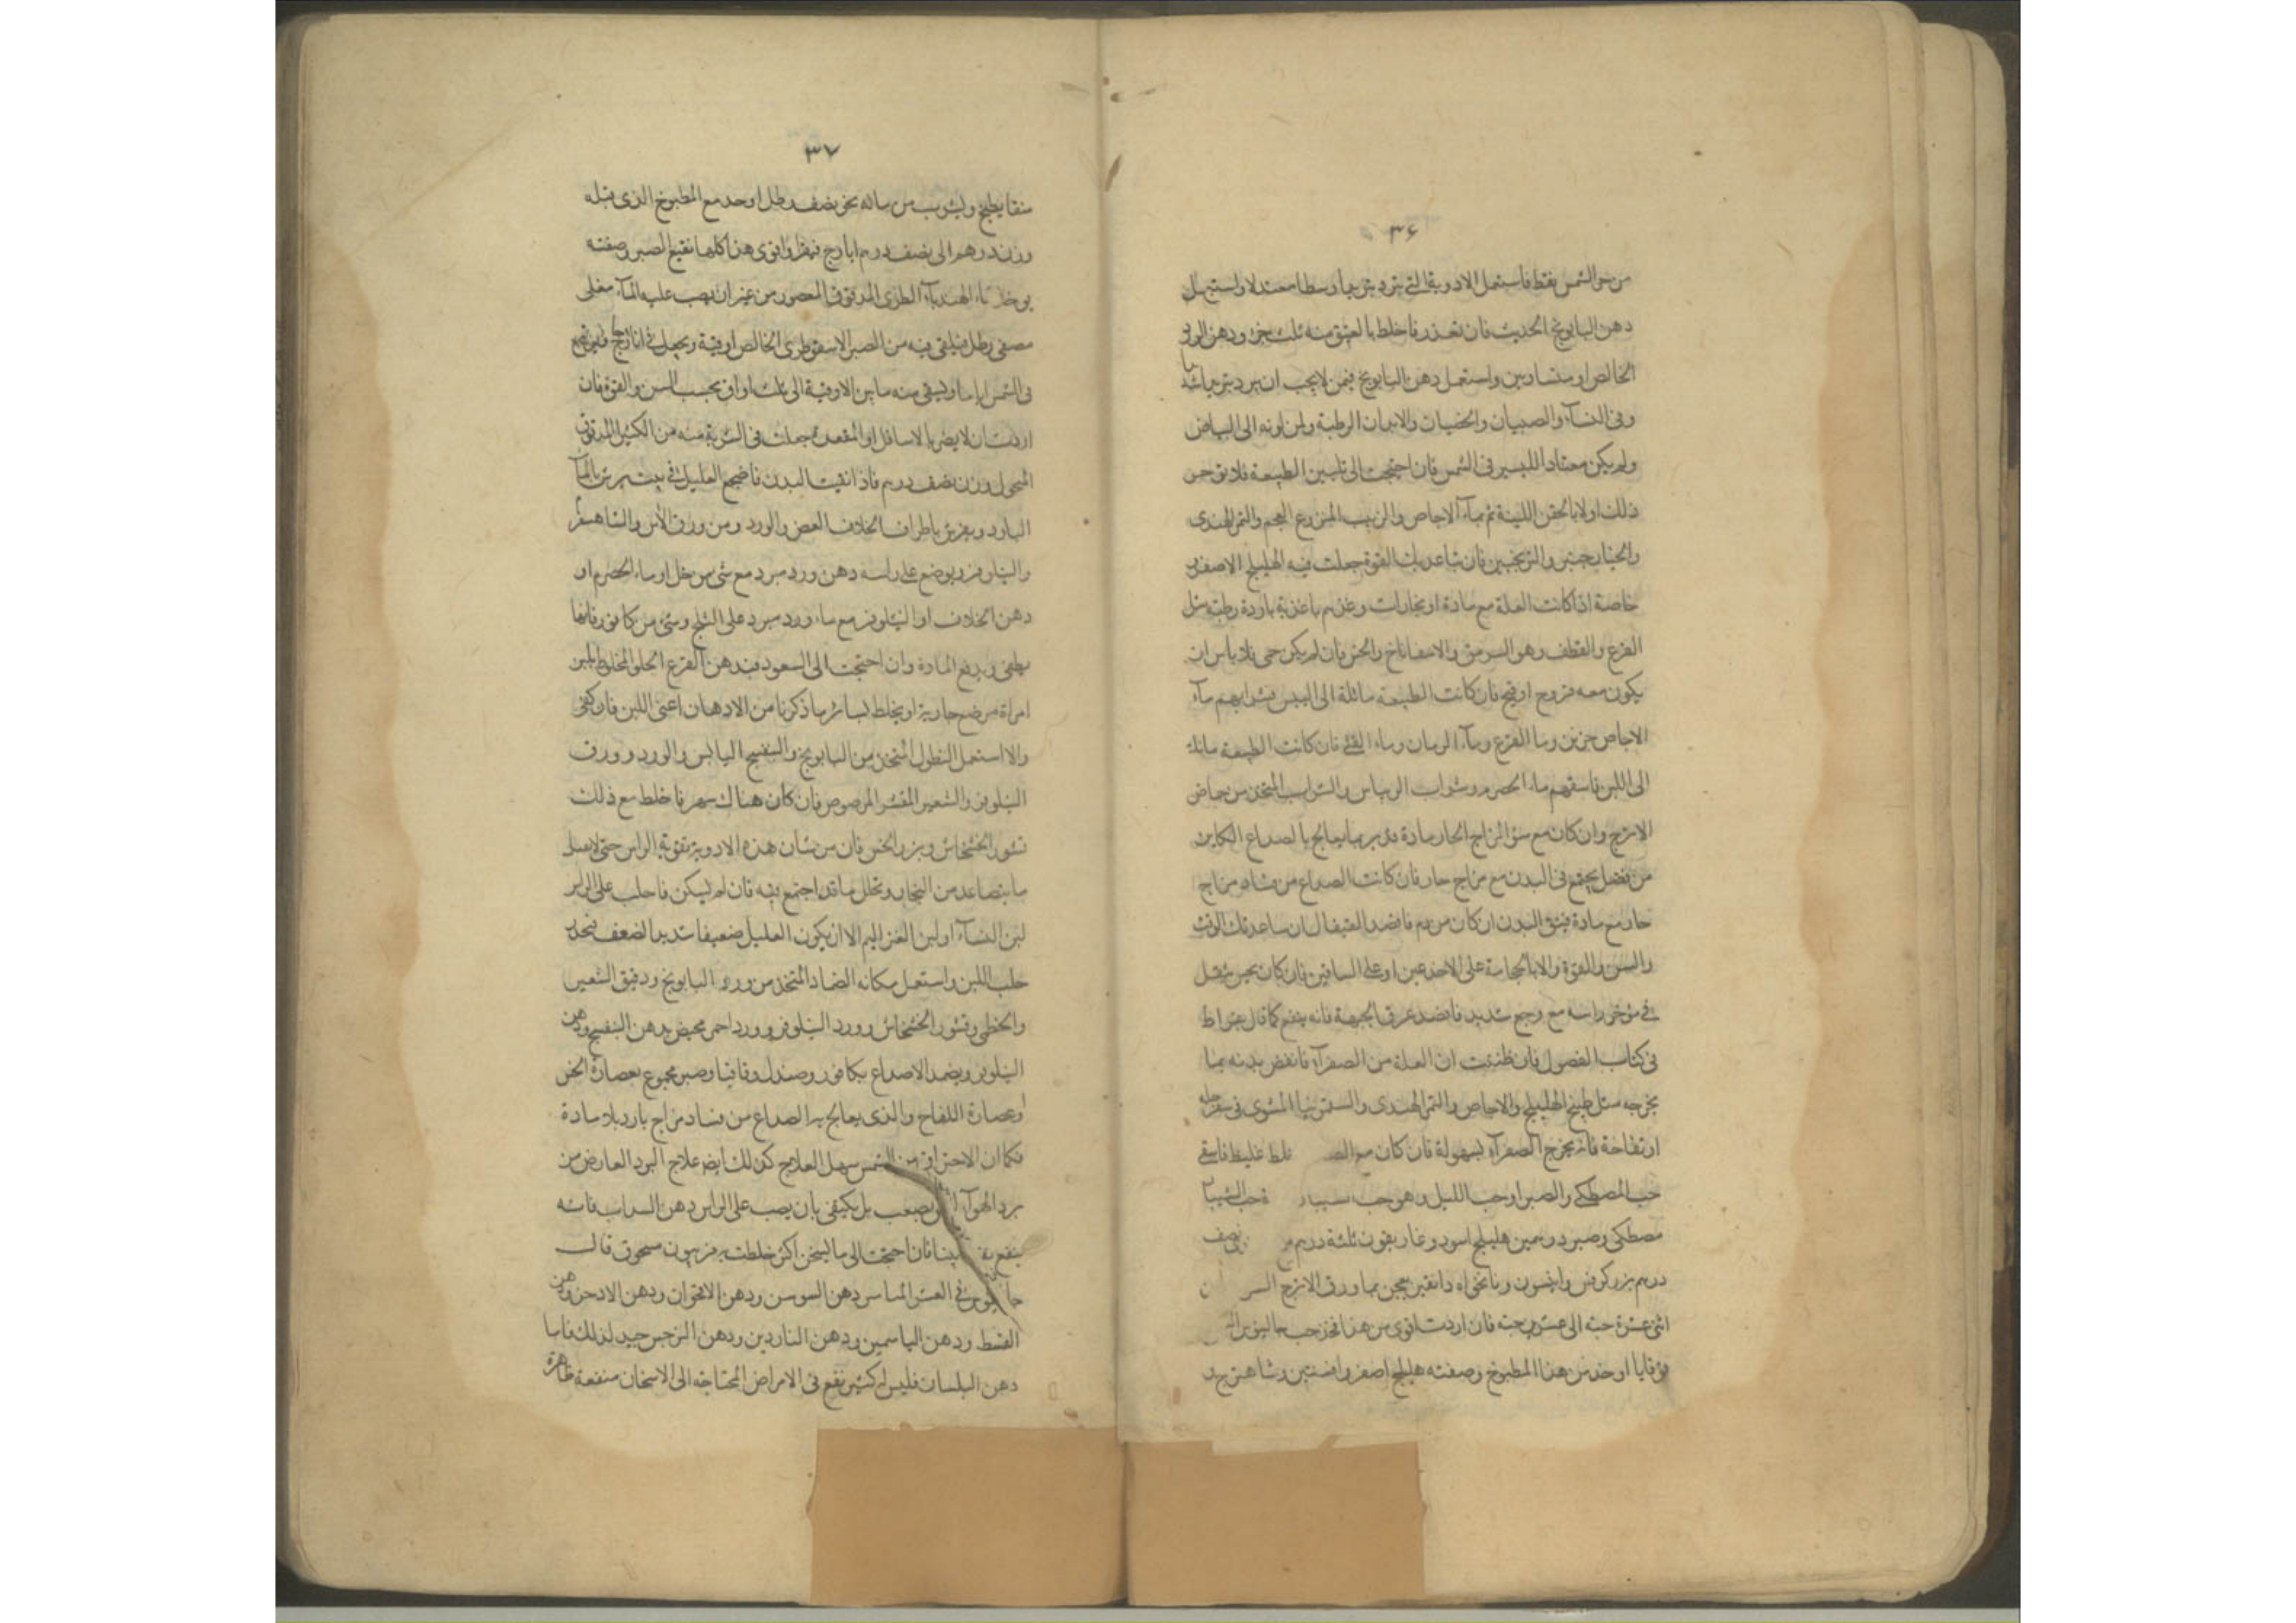 ٣٦
من حر الشمس فقط فاستعمل الادوية التي تبرد تبريدا وسطا معتدلا واستعمل
دهن البابونج الحديث فان تعذر فاخلط بالعتيق منه ثلث جزء ودهن الورد
الخالص او متساويين واستعمل دهن البابونج فيمن لا يجب ان يبرد تبريدا
وفي النسآء والصبيان والخصيان والابدان الرطبة ولمن لونه الى البياض
ولم يكن معتاد المسير في الشمس فان احتجت الى تليين الطبيعة فلا
ذلك اولا بالحقن اللينة ثم بمآء الاجاص والزبيب المنزوع العجم والتمر الهندي
والخيار شنبر والترنجبين فان ساعدتك القوة جعلت فيه الهليلج الاصفر
خاصة اذا كانت العلة مع مادة او بخارات وغذهم باغذية باردة رطبة مثل
القرع والقطف وهو السرمق والاسفاناخ والخس فان لم يكن حمى فلا باس ان
يكون معه فروج او فان كانت الطبيعة مائلة الى اليبس فشرابهم مآء
الاجاص وماء القرع ومآء الرمان وماء فان كانت الطبيعة مائلة
الى اللين فاسقهم ماء الحصرم وشراب الريباس والشراب المتخذ من حماض
الاترج وان كان مع سوء المزاج الحار مادة فدبر بما يعالج به الصداع الكاين
من فضل يجتمع في البدن مع مزاج حار فان كانت الصداع من فساد مزاج
حار مع مادة فينقى البدن ان كان من دم فافصد القيفال ان ساعدتك الوقت
والسن والقوة والا بالحجامة على الاخدعين او على الساقين فان كان يحس بثقل
في مؤخر راسه مع وجع شديد فافصد عرق الجبهة فانه ينفع كما قال بقراط
في كتاب الفصول فان ظننت ان العلة من الصفرآء فانفض بدنه بما
يخرجه مثل طبيخ الهليلج والاجاص والتمر الهندي والسقمونيا المشوي في سفرجلة
او تفاحة فانه يخرج الصفرآء بسهولة فان كان مع خلط غليظ فاسقي
حب المصطكى والصبر او حب الليل وهو حب
مصطكى وصبر درهمين هليلج اسود وغاريقون ثلثة دراهم نصف
درهم بزر كرفس وانيسون ونانخواه دانقين يعجن بماء ورق الاترج
اثنى عشرة حبة الى عشرين حبة فان اردت اقوى من هذا فخذ حب جالينوس
قوقايا او خذ من هذا المطبوخ وصفته هليلج اصفر وافسنتين وشاهترج
٣٧
منقا يطبخ ويشرب من مائه نحو نصف رطل او خذ مع المطبوخ الذي قبله
وزن درهم الى نصف درهم ايارج فيقرا واقوى هذا كلها نقيع الصبر وصفته
يوخذ ماء الهندبآء الطري المدقوق المعصور من غير ان يصب عليه المآء مغلى
مصفى رطل فيلقى فيه من الصبر الاسقوطري الخالص اوقية ويجعل في اناء زجاج
في الشمس اياما ويسقى منه ما بين الاوقية الى ثلث اواق بحسب السن والقوة فان
اردت ان لا يضر بالاسافل او المقعدة جعلت في الشربة منه من الكثيرا المدقوق
المنخول وزن نصف درهم فاذا انقيت البدن فاضجع العليل في بيت يرش بالمآء
البارد ويفرش باطراف الخلاف الغض والورد ومن ورق الآس والشاهسفرم
والنيلوفر ويوضع على راسه دهن ورد مبرد مع شئ من خل او ماء الحصرم او
دهن الخلاف او النيلوفر مع ماء ورد مبرد على الثلج وشئ من كافور فانها
يطفى ويدفع المادة وان احتجت الى السعوط فبدهن القرع الحلو المخلوط بلبن
امراة مرضع جارية او يخلط لسائر ما ذكرنا من الادهان اعنى اللبن فان كفى
والا استعمل النطول المتخذ من البابونج والبنفسج اليابس والورد وورق
النيلوفر والشعير المقشر المرضوض فان كان هناك سهر فاخلط مع ذلك
قشور الخشخاش وبزر الخس فان من شان هذه الادوية تقوية الراس حتى لا يقبل
ما يتصاعد من البخار وتحلل ما قد اجتمع فيه فان لم يسكن فاحلب على الراس
لبن النسآء او لبن العنز اليه الا ان يكون العليل ضعيفا شديد الضعف فتحذر
حلب اللبن واستعمل مكانه الضماد المتخذ من ورد البابونج ودقيق الشعير
والخطمى وقشور الخشخاش وورد النيلوفر وورد احمر بدهن البنفسج ودهن
النيلوفر ويضمد الاصداغ بكافور وصندل وقاقيا وصبر مجموع بعصارة الخس
او عصارة اللفاح والذي يعالج به الصداع من فساد مزاج بارد بلا مادة
فكما ان الاحتراق من الشمس سهل العلاج كذلك ايضا علاج البرد العارض من
برد الهوآء يصعب بل يكتفى بان يصب على الراس دهن السداب فانه
ينفع فان احتجت الى ما يسخن اكثر خلطت به فربيون مسحوق قال
جالينوس في العشر المياسر دهن السوسن ودهن الاقحوان ودهن الاذخر ودهن
القسط ودهن الياسمين ودهن الناردين ودهن النرجس جيد لذلك فاما
دهن البلسان فليس له كثير نفع في الامراض المحتاجة الى الاسخان منفعة ظاهرة